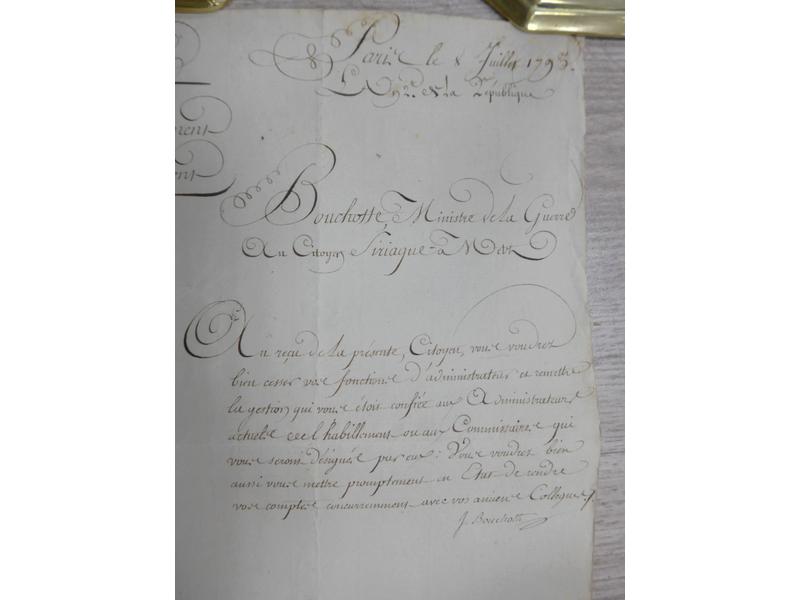 Paris le 8 Juillet 1793.
L'an 2e. de la République
ment
ent
Bouchotte, Ministre de la Guerre
Au Citoyen Siriaque à Metz
Au reçu de la présente, Citoyen, vous voudrez
bien cesser vos fonctions d'administrateur et remettre
la gestion qui vous étoit confiée aux Administrateurs
actuels de l'habillement ou aux Commissaires qui
vous seront désignés par eux : Vous voudrez bien
aussi vous mettre promptement en Etat de rendre
vos comptes concurremment avec vos anciens Collegues./.
J. Bouchotte